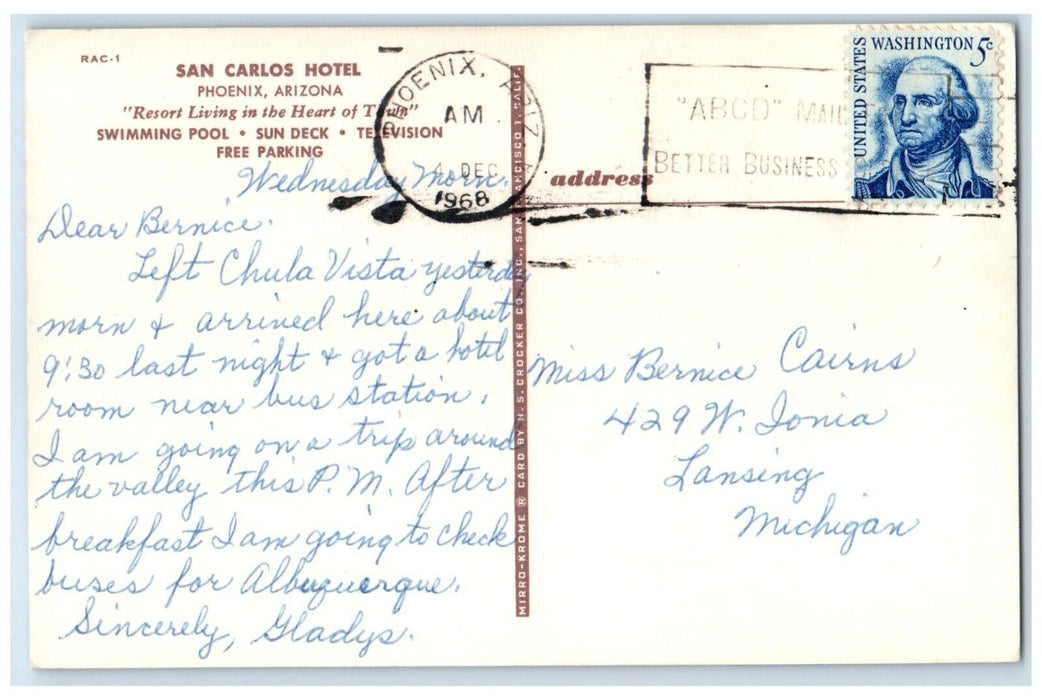 RAC-1
SAN CARLOS HOTEL
PHOENIX, ARIZONA
"Resort Living in the Heart of Town"
SWIMMING POOL • SUN DECK • TELEVISION
FREE PARKING
Wednesday Morn.
Dear Bernice.
Left Chula Vista yesterday
morn & arrived here about
9:30 last night & got a hotel
room near bus station.
I am going on a trip around
the valley this P.M. After
breakfast I am going to check
buses for Albuquerque.
Sincerely, Gladys.
MIRRO-KROME ® CARD BY H. S. CROCKER CO., INC., SAN FRANCISCO 1, CALIF.
PHOENIX, ARIZ
AM
4 DEC
1968
"ABCD" MAIL
BETTER BUSINESS
UNITED STATES
WASHINGTON 5c
address
Miss Bernice Cairns
429 W. Ionia
Lansing
Michigan